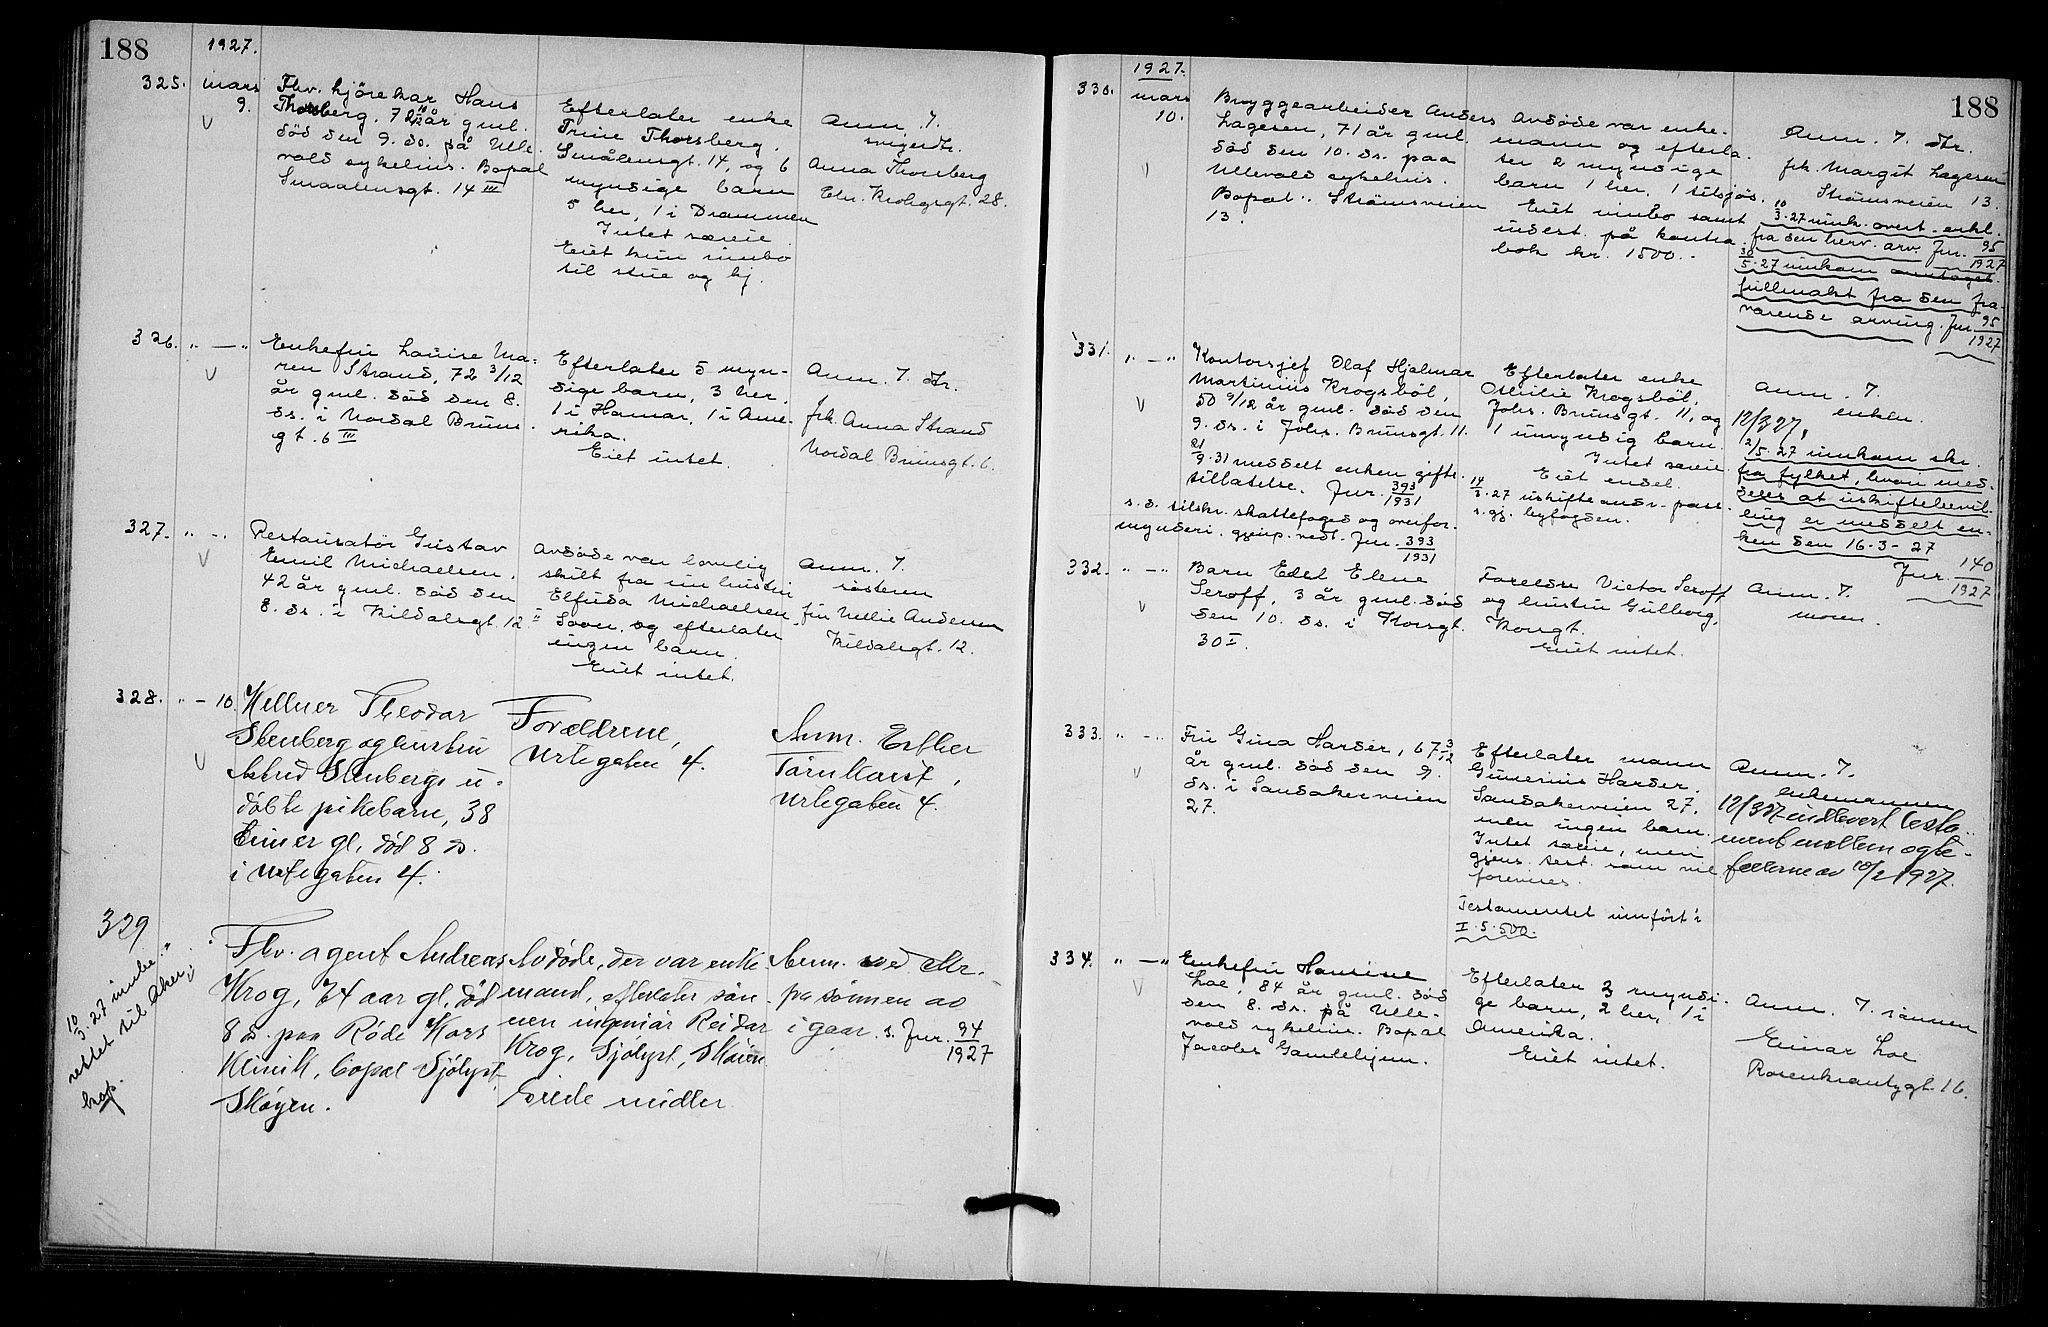 188
1927.
325. mars
9.
Fhv. kjörekar Hans
Thorsberg, 7 år gml.
död den 9. ds. på Ulle-
vold sykehus. Bopæl
Smaalensgt. 14 III
Efterlater enke
Trine Thorsberg.
Smålensgt. 14, og 6
myndige barn
5 her, 1 i Drammen
Intet særeie.
Eiet kun innbo
til stue og kj.
Anm. 7.
svigerdtr.
Anna Thorsberg
Chr. Krohgsgt. 28.
326. " — "
Enkefru Louise Ma-
ren Strand, 72 3/12
år gml. död den 8.
ds. i Nordal Bruns-
gt. 6 III
Efterlater 5 myn-
dige barn, 3 her,
1 i Hamar, 1 i Ame-
rika.
Eiet intet.
Anm. 7. dtr.
frk. Anna Strand
Nordal Brunsgt. 6.
327. " — "
Restauratör Gustav
Emil Michaelsen,
42 år gml. död den
8. ds. i Kildalsgt. 12 II
Avdöde var lovlig
skilt fra sin hustru
Elfrida Michaelsen
og efterlater
ingen barn.
Eiet intet.
Anm. 7.
sösteren
fru Nellie Andersen
Kildalsgt. 12.
328. " — 10.
Kellner Theodor
Stenberg og hustru
Astrid Stenbergs u-
döbte pikebarn, 38
timer gl, död 8 ds.
i Urtegaten 4.
Forældrene,
Urtegaten 4.
Anm. Esther
Törnkvist,
Urtegaten 4.
329
10/3.27 innbe-
rettet til Aker
Fhv. agent Andreas
Krog, 74 aar gl, död
8 ds. paa Röde Kors
Klinik, bopæl Sjölyst,
Sköyen.
Avdöde, der var enke-
mand, efterlater søn-
nen ingeniör Reidar
Krog, Sjölyst, Sköien
Eiede midler
Anm. ved
pr sönnen av
i gaar. s. Jur. 94/1927
188
1927.
330. mars
10.
Bryggearbeider Anders
Lagesen, 71 år gml.
död den 10. ds. paa
Ullevold sykehus.
Bopæl: Strömsveien
13.
Avdöde var enke-
mann og efterla-
ter 2 myndige
barn 1 her, 1 tilsjös.
Eiet innbo samt
indest. på kontra-
bok kr. 1500.-
Anm. 7. dtr.
frk. Margit Lagesen
Strömsveien 13.
10/3.27 innk. overt. erkl.
fra den herv. arv. Jur. 95/1927
30/5.27 innkom
fullmakt fra den fra-
værende arving. Jur. 95/1927
331. " — "
Kontorsjef Olaf Hjalmar
Martinius Krogsböl,
50 9/12 år gml. död den
9. ds. i Johs. Brunsgt. 11.
21/9.31 meddelt enken gifte-
tillatelse. Jur. 393/1931
s. d. tilskr. skattefoged og overfor-
mynderi. gjenp. vedl. Jur. 393/1931
Efterlater enke
Othilie Krogsböl,
Johs. Brunsgt. 11, og
1 umyndig barn.
Intet særeie
Eiet endel.
14/3.27 uskifteandr. pass.
s. gj. byfogden.
Anm. 7.
enken.
12/3 27,
2/5.27 innkom skr.
fra fylket, hvori med-
deles at uskiftebevil-
ling er meddelt en-
ken den 16-3-27
Jur. 140/1927
332. " — "
Barn Edel Elene
Seroff, 3 år gml. död
den 10. ds. i Korsgt.
30 I.
Foreldre Victor Seroff
og hustru Gulborg,
Korsgt.
Eiet intet.
Anm. 7.
moren.
333. " — "
Fru Gina Harder, 67 3/12
år gml. död den 9.
ds. i Sandakerveien
27.
Efterlater mann
Gunerius Harder.
Sandakerveien 27,
men ingen barn.
Intet særeie, men
gjens. test. som vil
forevises.
Testamentet innfört i
I. 5. 500.
Anm. 7.
enkemannen
12/3 27 indlevert testa-
ment mellem ægte-
fællerne av 10/2 1927.
334. " — "
Enkefru Hansine
Loe, 84 år gml. död
den 8. ds. på Ulle-
vold sykehus. Bopæl
Jacobs Gamlehjem.
Efterlater 3 myndi-
ge barn, 2 her, 1 i
Amerika.
Eiet intet.
Anm. 7. sönnen
Einar Loe
Rosenkrantzgt. 16.